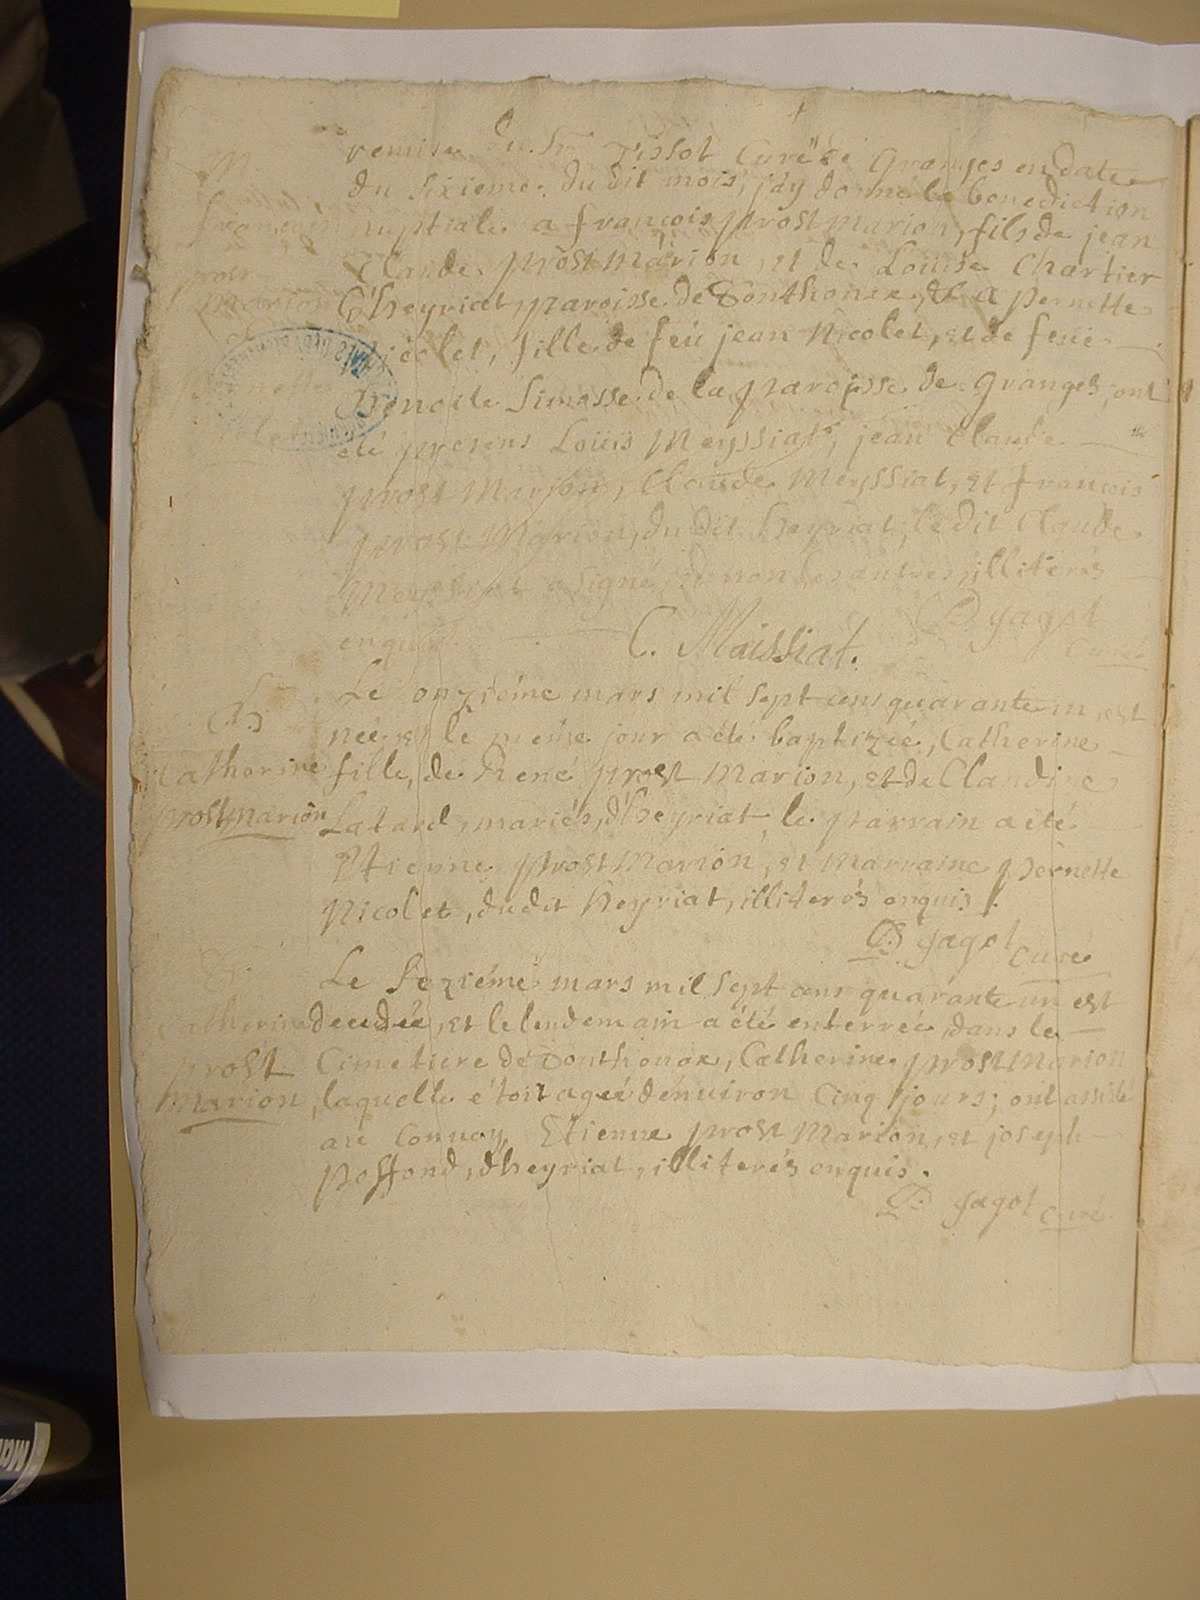 remise du Sr Tissot Curé de Granges en date
du sixieme du dit mois, j'ay donné la benediction
nuptiale a françois prost Marion, fils de jean
Claude prost Marion, et de Louise Chartier
d'heyriat, paroisse de Donthoux, et a pernette
Nicolet, fille de feü jean Nicolet, et de feüe
Benoite Simosse de la paroisse de Granges, ont
été presens Loüis Meyssiat, jean Claude
prost Marion, Claude Meyssiat, et françois
prost Marion, du dit heyriat, le dit Claude
Meyssiat a signé, et non les autres, illiterés
enquis.
B Jagot
Curé
C. Maissiat.
M
françois
prost
Marion
&
B
Catherine
prost Marion
Le onziéme mars mil sept cens quarante un, est
née et le méme jour a été baptizée, Catherine
fille, de René prost Marion, et de Claudine
Latard, mariés, d'heyriat, le parrain a été
Etienne prost Marion, et marraine pernette
Nicolet, du dit heyriat, illiterés enquis.
B Jagot
Curé
Catherine
prost
Marion
Le sezziéme mars mil sept cens quarante un est
decedée, et le lendemain a été enterrée, dans le
Cimetiere de Donthoux, Catherine prost Marion
laquelle étoit ageé d'environ Cinq jours; ont assisté
au Convoy Etienne prost Marion, et joseph
poffond, d'heyriat, illiterés enquis.
B. Jagot Curé